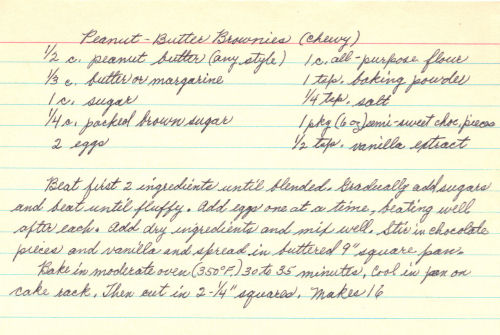 Peanut-Butter Brownies (chewy)
1/2 c. peanut butter (any style) 1 c. all-purpose flour
1/3 c. butter or margarine 1 tsp. baking powder
1 c. sugar 1/4 tsp. salt
1/4 c. packed brown sugar 1 pkg (6 oz) semi-sweet choc. pieces
2 eggs 1/2 tsp. vanilla extract
Beat first 2 ingredients until blended. Gradually add sugars
and beat until fluffy. Add eggs one at a time, beating well
after each. Add dry ingredients and mix well. Stir in chocolate
pieces and vanilla and spread in buttered 9" square pan.
Bake in moderate oven (350°F.) 30 to 35 minutes, Cool in pan on
cake rack. Then cut in 2-1/4" squares. Makes 16